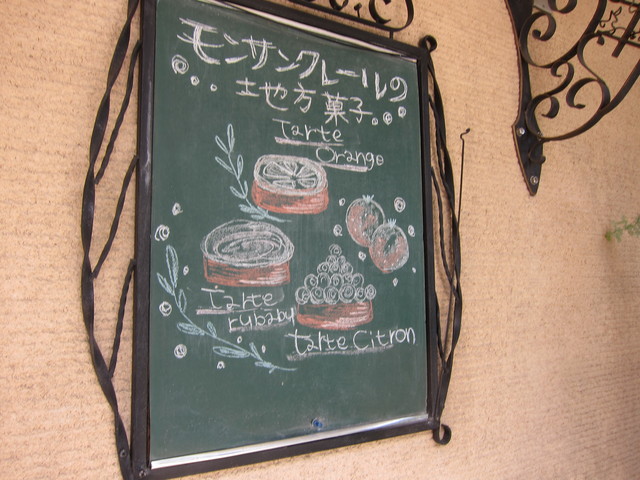 モンサンクレールの
土地方菓子
Tarte
Orange
Tarte
rubabu
tarte Citron